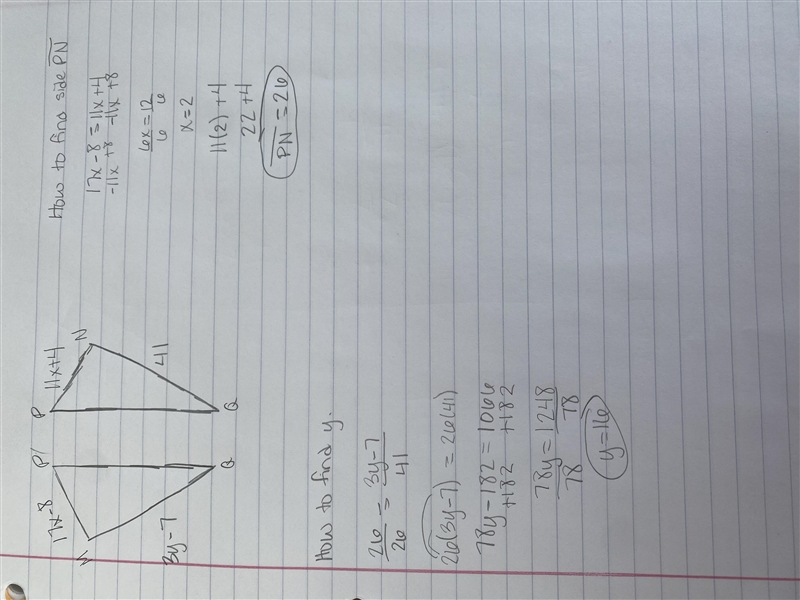 17x-8
P
M
3y-7
Q
P
11x+4
N
41
Q
How to find side PN
17x-8=11x+4
-11x +8 -11x +8
6x=12
6 6
x=2
11(2)+4
22+4
PN=26
How to find y.
26 = 3y-7
26 41
26(3y-7) = 26(41)
78y-182=1066
+182 +182
78y=1248
78 78
y=16